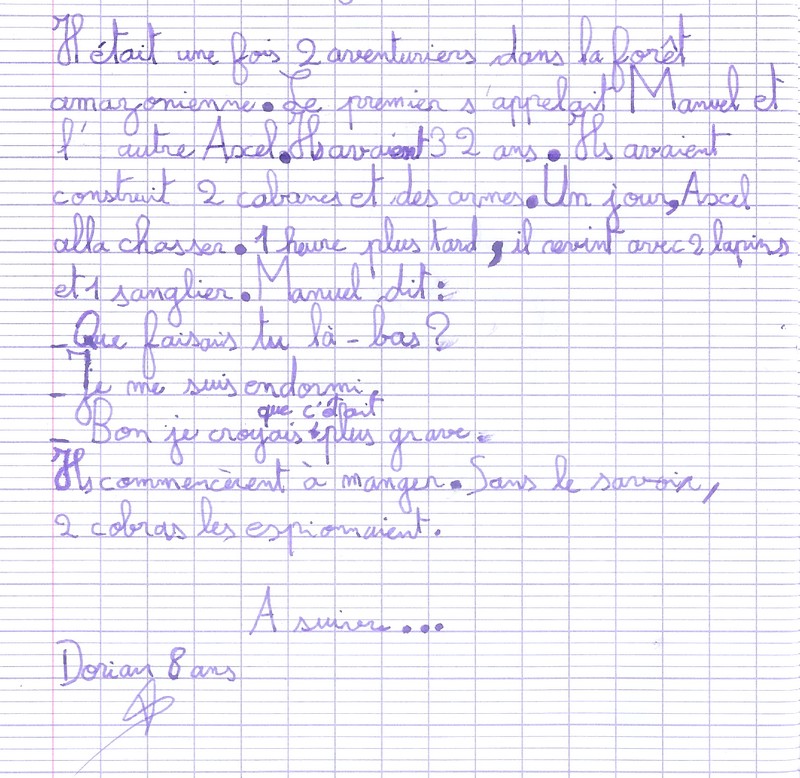 Il était une fois 2 aventuriers dans la forêt
amazonienne. Le premier s'appelait Manuel et
l'autre Axcel. Ils avaient 32 ans. Ils avaient
construit 2 cabanes et des armes. Un jour, Axcel
alla chasser. 1 heure plus tard, il revint avec 2 lapins
et 1 sanglier. Manuel dit :
_ Que faisais tu là-bas ?
_ Je me suis endormi.
que c'était
_ Bon je croyais plus grave.
Ils commencèrent à manger. Sans le savoir,
2 cobras les espionnaient.
A suivre...
Dorian 8 ans